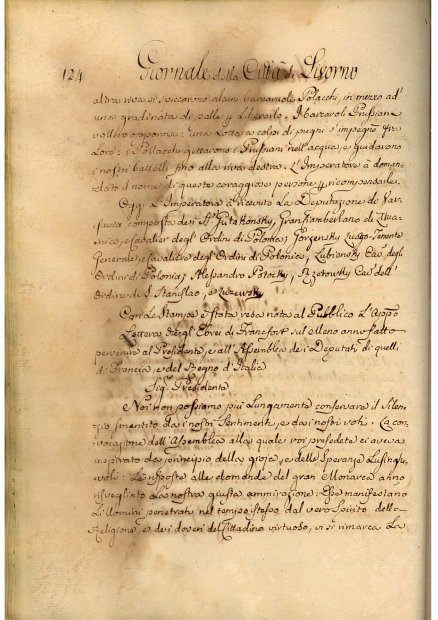 124 Giornale della Città di Livorno
altra riva si spiccarono alcuni barcaruoli Polacchi, in mezzo ad'
una gradinata di palle, e liberarlo. I barcaroli Prussiani
vollero opporsi: una Lotta a colpi di pugni s'impegnò fra
Loro: i Polacchi gettarono i Prussiani nell'acqua, e guidarono
i nostri battelli fino alla riva destra. L'Imperatore à doman-
dato il nome di queste coraggiose persone p. ricompensarle.
Oggi L'Imperatore à ricevuto La Deputazione di Var-
savia composta dei Gutakonsky, Gran Ciamberlano di Litua-
nia, e Cavalier degl'Ordini di Polonia; Gorzensky Luogo-Tenente
Generale e Cavaliere degl'Ordini di Polonia, Lubiensky Cav. degl'
Ordini di Polonia; Alesandro Potocky, Rzetowsky Cav. dell'
Ordine di S. Stanislao, e Luzewsky
Con Le Stampe è stata resa nota al Pubblico L'Appo
Lettera degl'Ebrei di Francfort sul Meno anno fatto
pervenire al Presidente, e all'Assemblea dei Deputati di quelli
di Francia, e del Regno d'Italia
Sig. Presidente
Noi non possiamo più Lungamente conservare il Silen-
zio smentito dai nostri Sentimenti, e dai nostri voti. La con-
vocazione dell'Assemblea alla quale voi presedete ci aveva
inspirato da principio della gioja, e delle Speranze Lusinghe-
voli: Le risposte alle domande del gran Monarca anno
risvegliato La nostra giusta ammirazione: Esse manifestano
Li Uomini penetrati nel tempo istesso dal vero Spirito della
Religione, e dei doveri del Cittadino virtuoso, vi si rimarca La